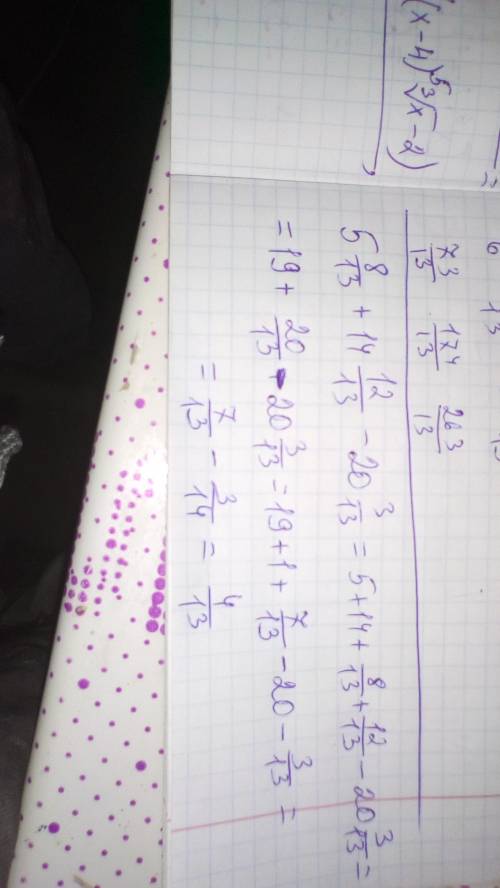 (x-4)⁵ ∛x-2)
=
73/13 174/13 263/13
5 8/13 + 14 12/13 - 20 3/13 = 5+14+ 8/13 + 12/13 - 20 3/13 =
= 19 + 20/13 - 20 3/13 = 19+1+ 7/13 - 20 - 3/13 =
= 7/13 - 3/14 = 4/13